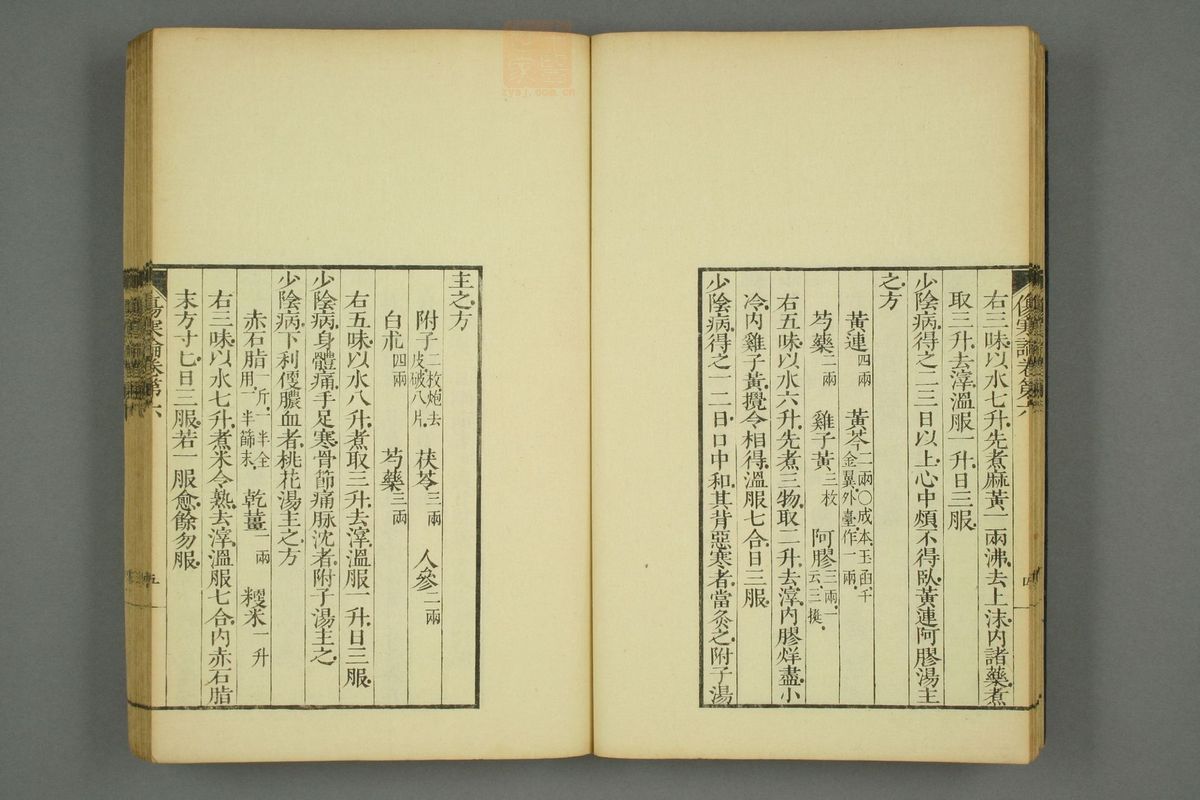 右三味以水七升先煮麻黃一兩沸去上沫内諸藥煮
取三升去滓溫服一升日三服
少陰病得之二三日以上心中煩不得臥黃連阿膠湯主
之方
黃連四兩 黃芩二兩〇成本玉函千金翼外臺作一兩
芍藥二兩 雞子黃三枚 阿膠三兩一云三挺
右五味以水六升先煮三物取二升去滓内膠烊盡小
冷内雞子黃攪令相得溫服七合日三服
少陰病得之一二日口中和其背惡寒者當灸之附子湯
傷寒論卷第六
四
主之方
附子二枚炮去皮破八片 茯苓三兩 人參二兩
白朮四兩 芍藥三兩
右五味以水八升煮取三升去滓溫服一升日三服
少陰病身體痛手足寒骨節痛脉沈者附子湯主之
少陰病下利便膿血者桃花湯主之方
赤石脂一斤一半全用一半篩末 乾薑一兩 粳米一升
右三味以水七升煮米令熟去滓溫服七合内赤石脂
末方寸匕日三服若一服愈餘勿服
傷寒論卷第六
五
zysj.com.cn